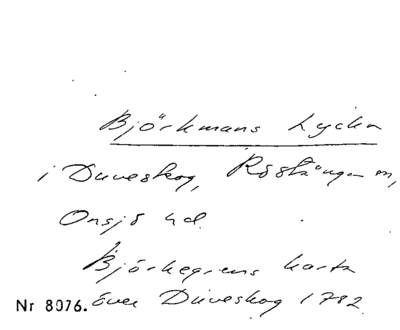 Björkmans Lycka
i Duveskog, Röstånga sn,
Onsjö hd.
Björkegrens karta
Nr 8076. över Duveskog 1782